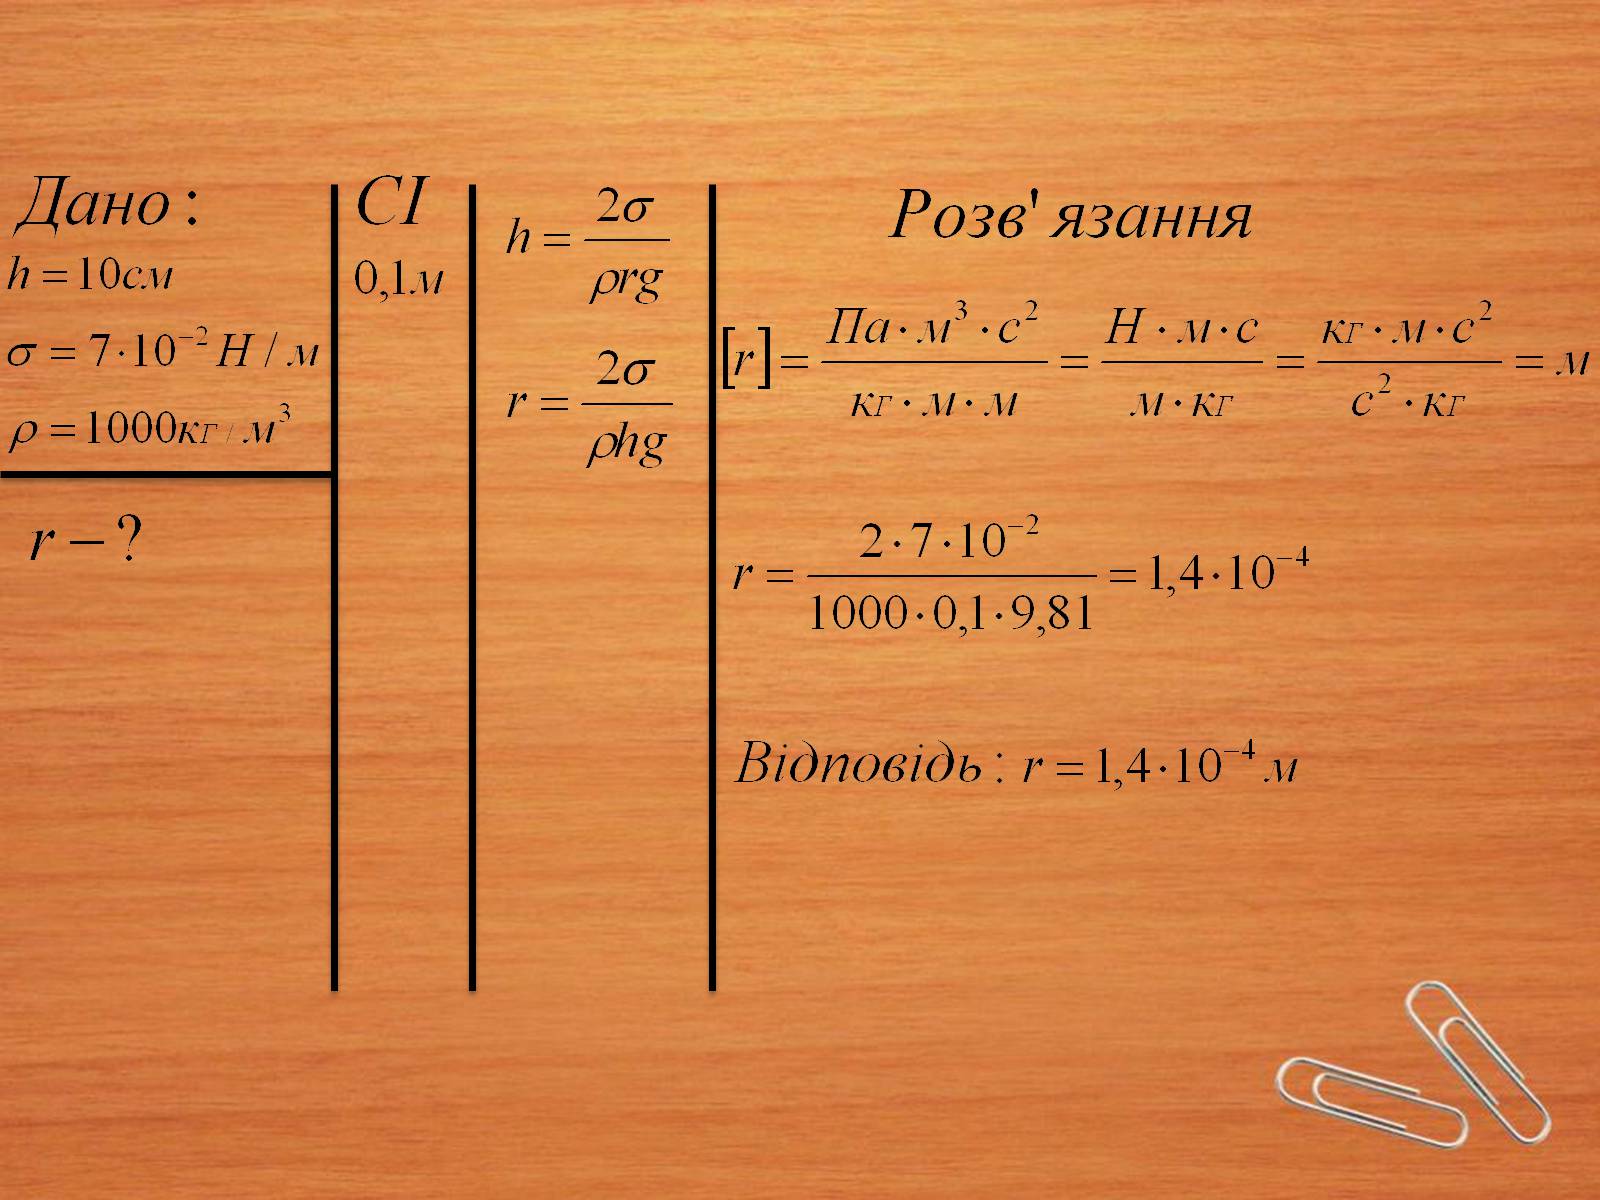 Дано:
h = 10см
σ = 7·10⁻² Н / м
ρ = 1000кг / м³
r – ?
СІ
0,1м
h = 2σ / ρrg
r = 2σ / ρhg
Розв' язання
[r] = Па·м³·с² / кг·м·м = Н·м·с / м·кг = кг·м·с² / с²·кг = м
r = 2·7·10⁻² / 1000·0,1·9,81 = 1,4·10⁻⁴
Відповідь: r = 1,4·10⁻⁴ м